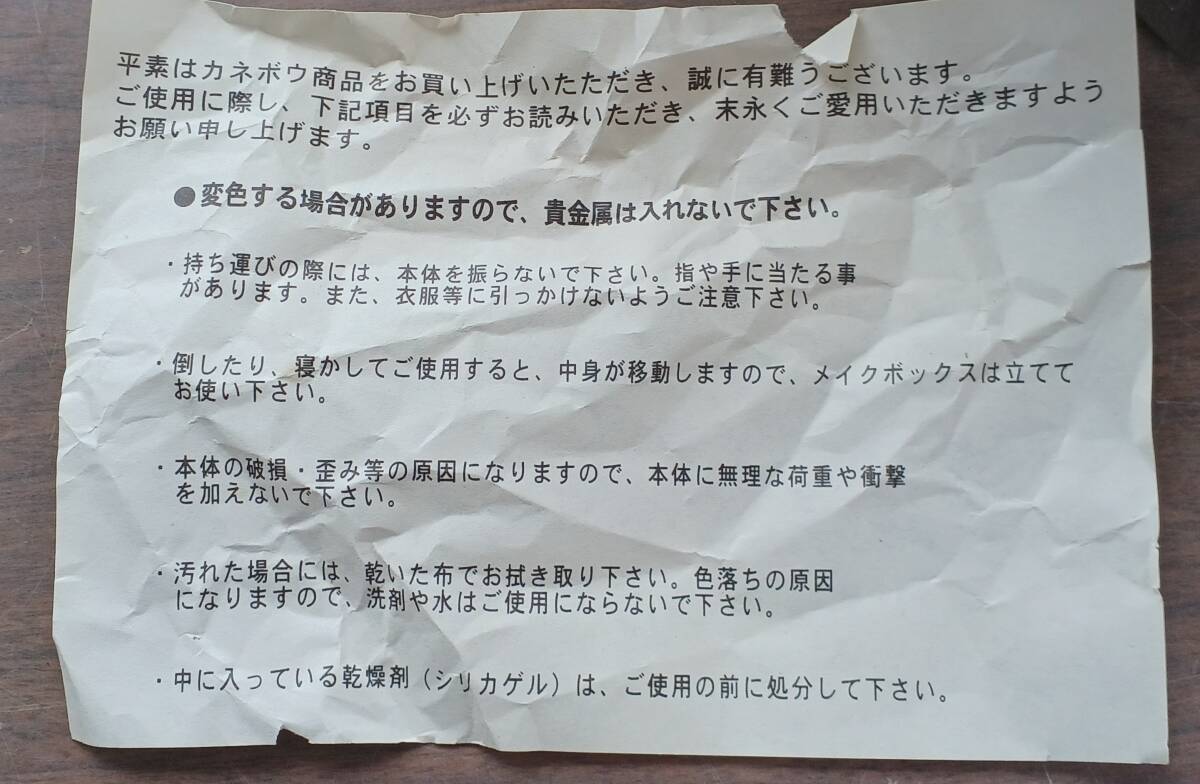 平素はカネボウ商品をお買い上げいたただき、誠に有難うございます。
ご使用に際し、下記項目を必ずお読みいただき、末永くご愛用いただきますよう
お願い申し上げます。
●変色する場合がありますので、貴金属は入れないで下さい。
・持ち運びの際には、本体を振らないで下さい。指や手に当たる事
があります。また、衣服等に引っかけないようご注意下さい。
・倒したり、寝かしてご使用すると、中身が移動しますので、メイクボックスは立てて
お使い下さい。
・本体の破損・歪み等の原因になりますので、本体に無理な荷重や衝撃
を加えないで下さい。
・汚れた場合には、乾いた布でお拭き取り下さい。色落ちの原因
になりますので、洗剤や水はご使用にならないで下さい。
・中に入っている乾燥剤（シリカゲル）は、ご使用の前に処分して下さい。